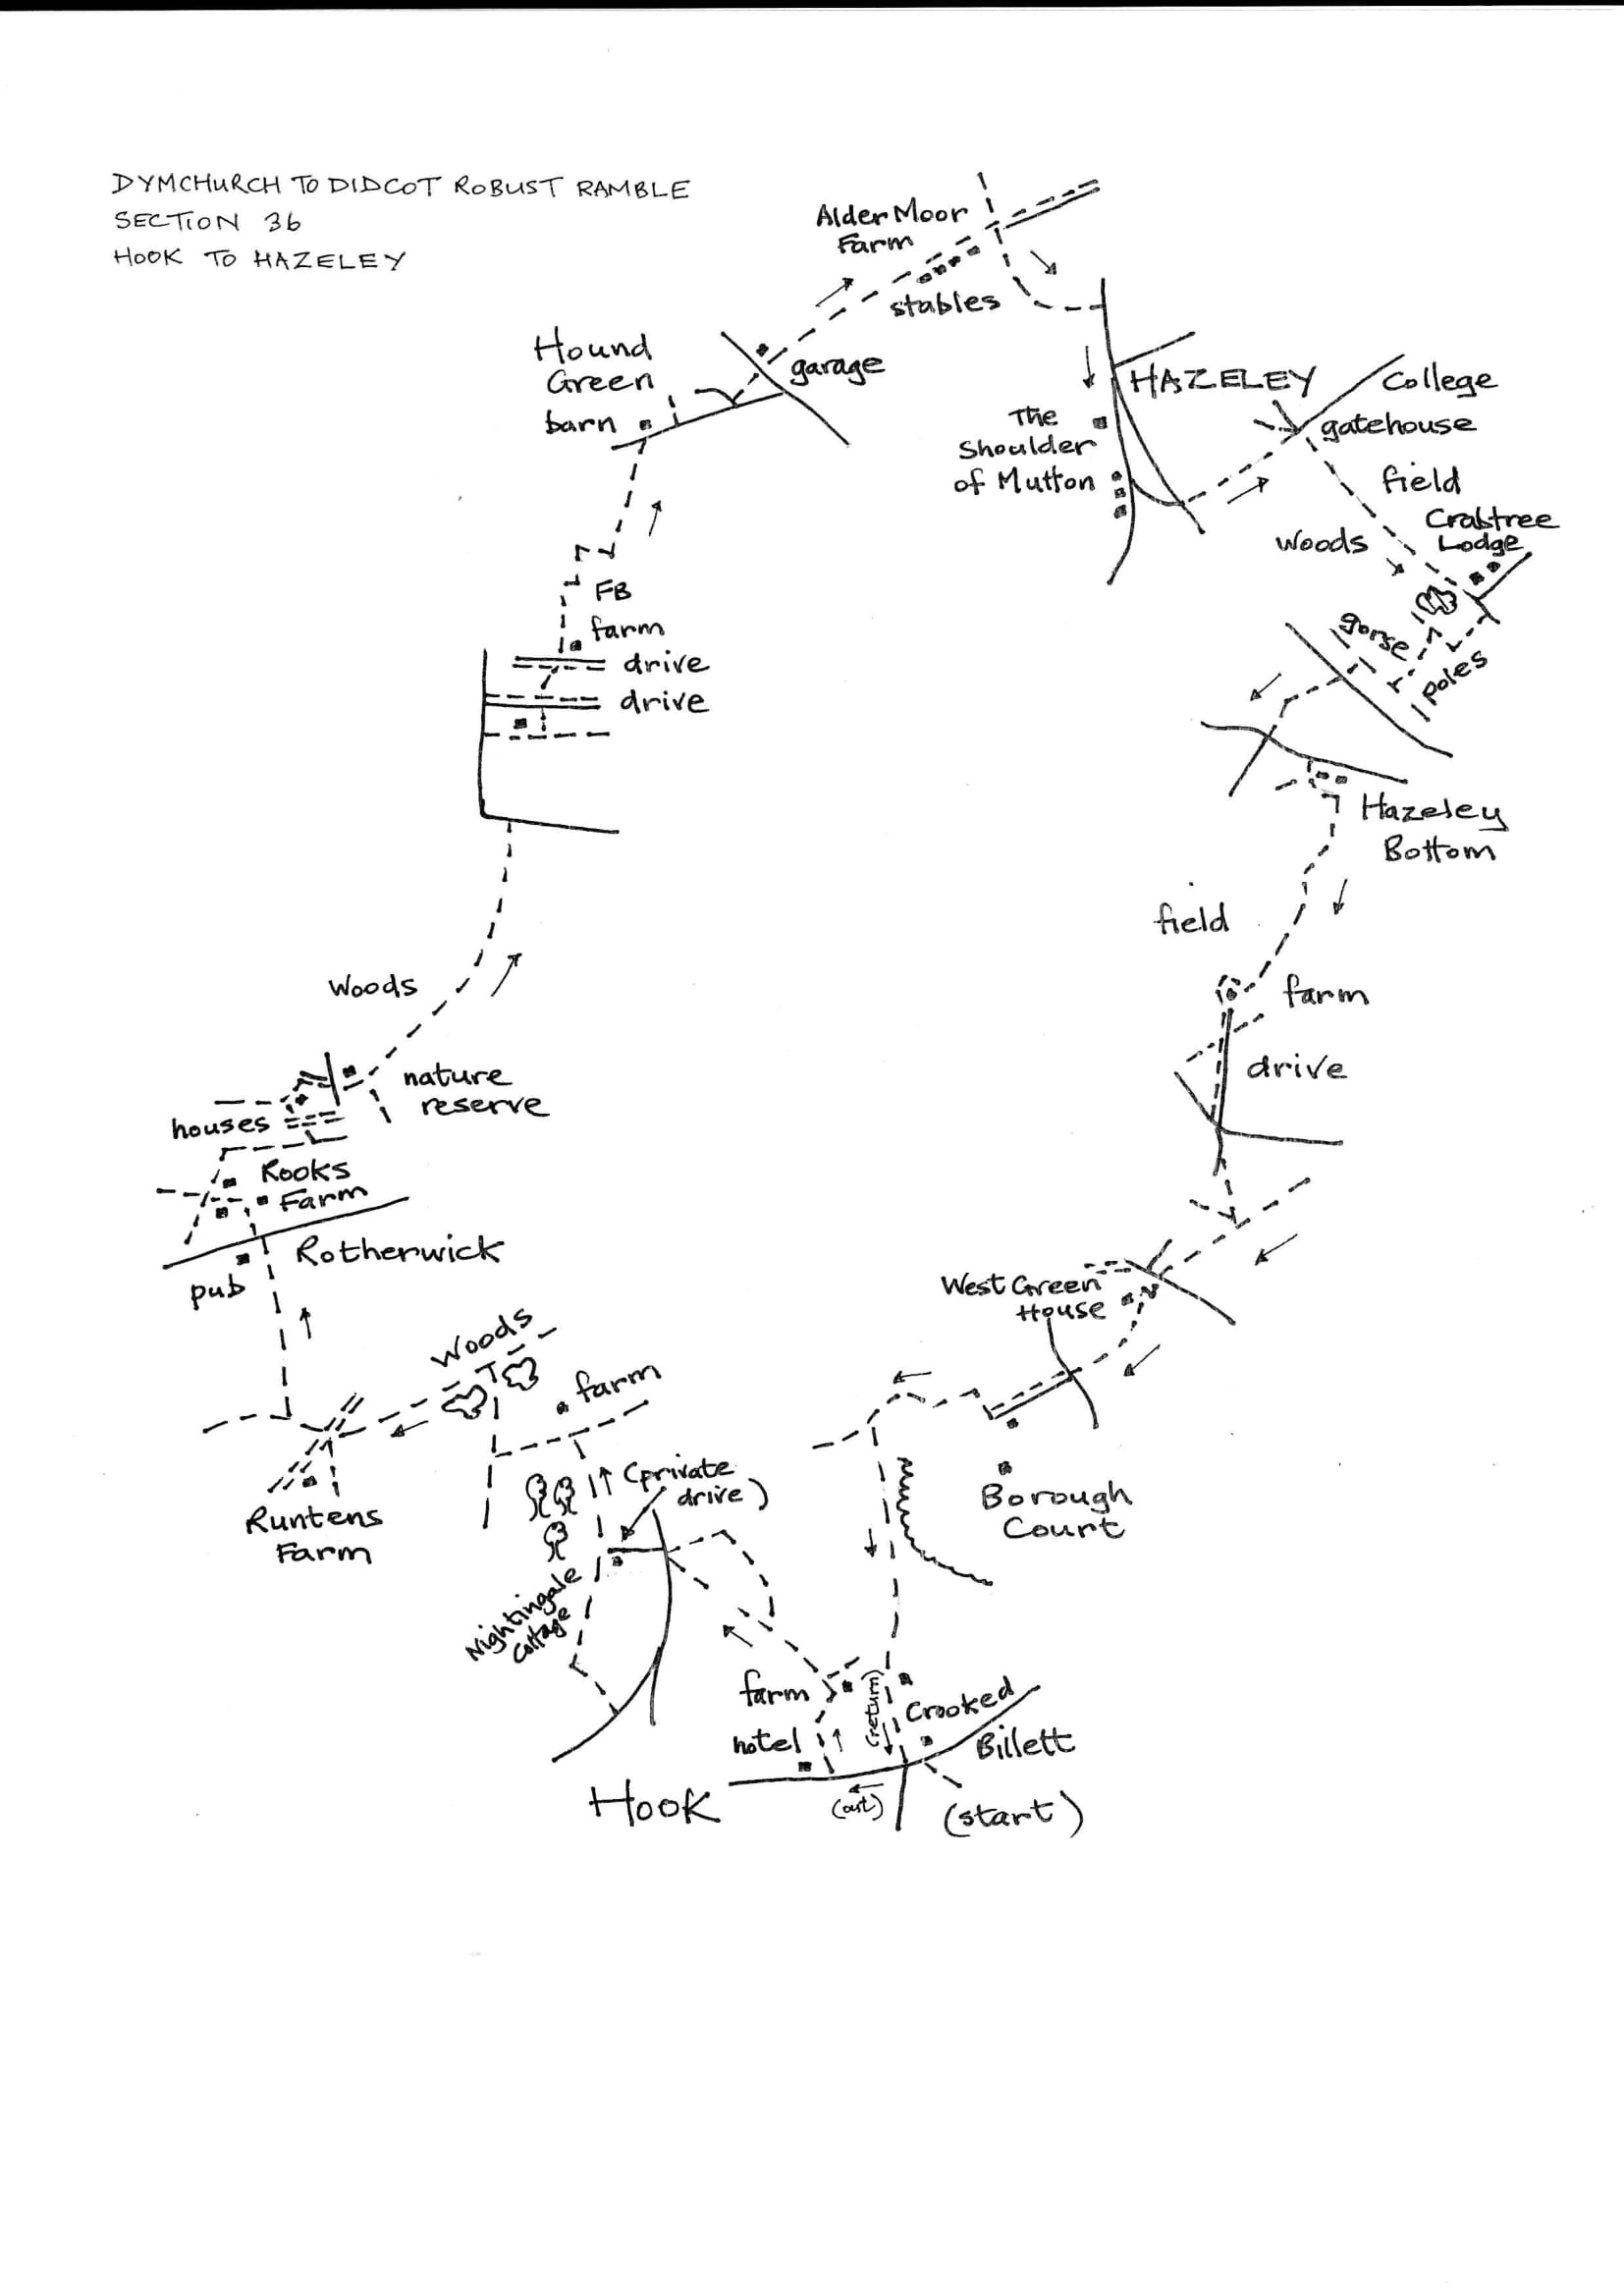 DYMCHURCH TO DIDCOT ROBUST RAMBLE
SECTION 36
HOOK TO HAZELEY
Alder Moor
Farm
stables
Hound
Green
barn
garage
HAZELEY
The
Shoulder
of Mutton
College
gatehouse
field
Crabtree
Lodge
woods
gorse
poles
FB
farm
drive
drive
Hazeley
Bottom
field
farm
drive
Woods
nature
reserve
houses
Rooks
Farm
Rotherwick
pub
West Green
House
Woods
farm
(private
drive)
Runtens
Farm
Nightingale
Cottage
Borough
Court
farm
(return)
Crooked
Billett
hotel
Hook
(out)
(start)